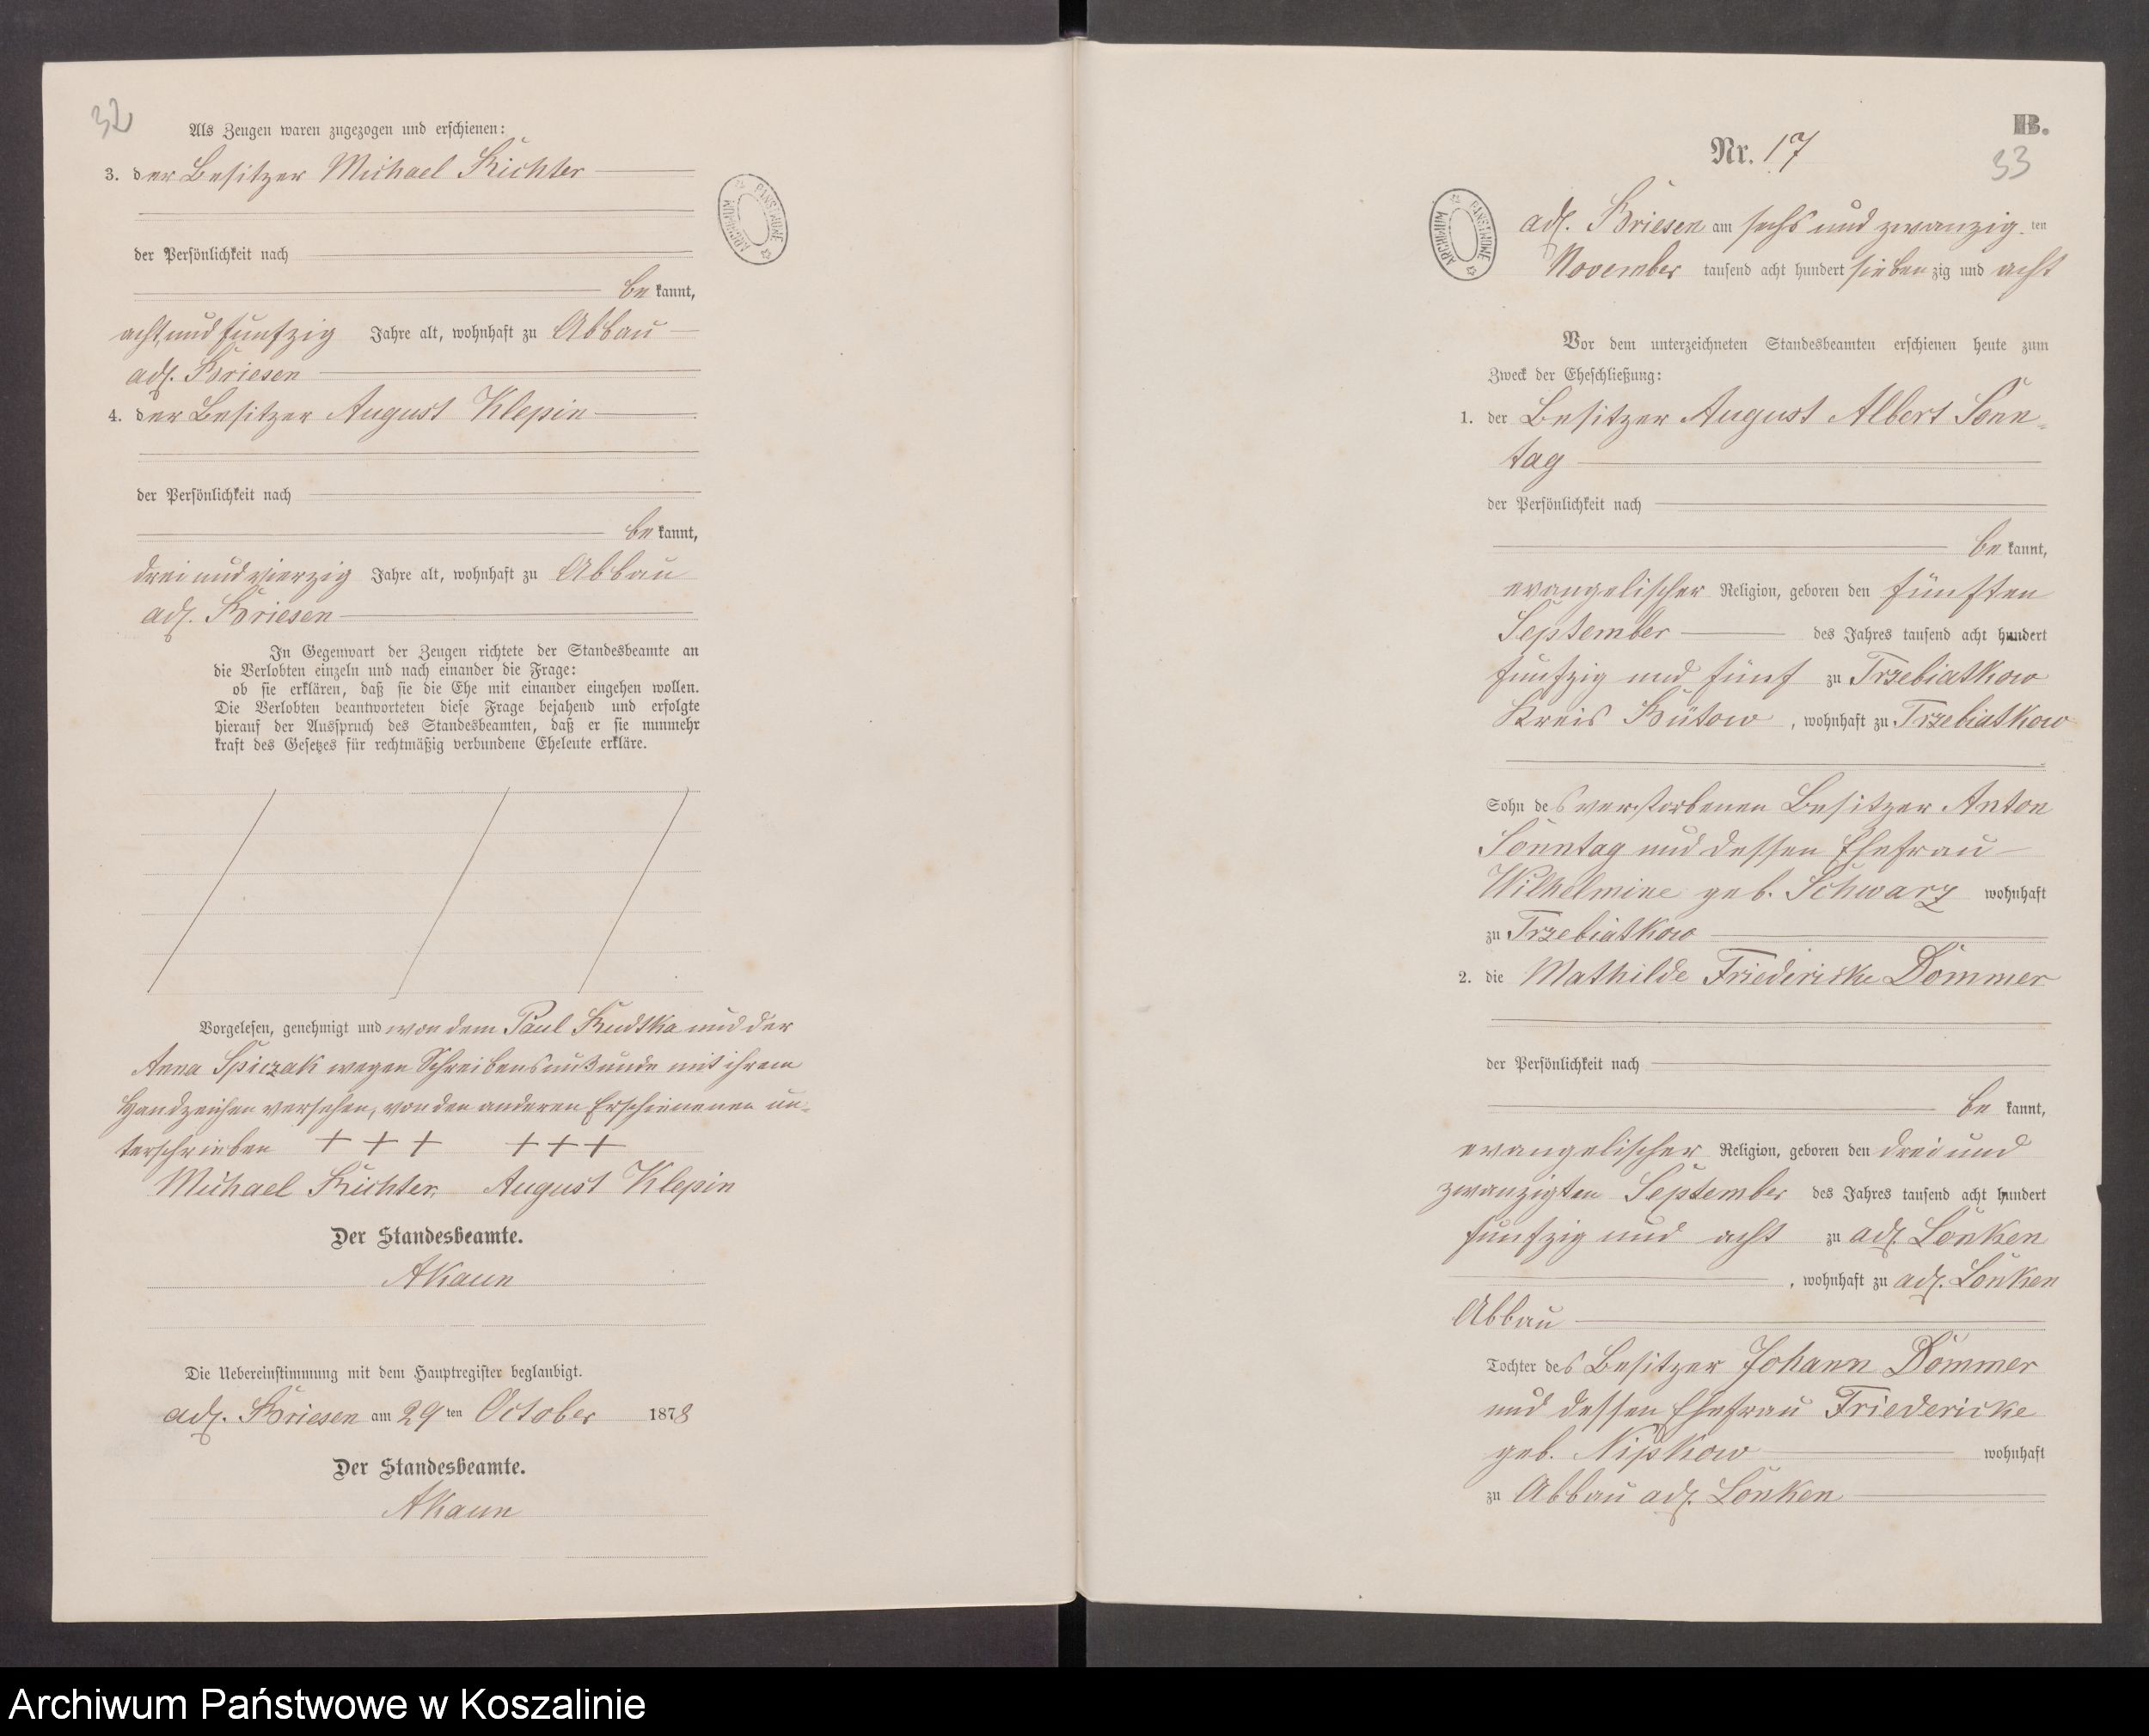 32
Als Zeugen waren zugezogen und erschienen:
3. der Besitzer Michael Richter
der Persönlichkeit nach
be kannt,
acht und funfzig Jahre alt, wohnhaft zu Abbau
adl. Briesen
4. der Besitzer August Klepin
der Persönlichkeit nach
be kannt,
drei und vierzig Jahre alt, wohnhaft zu Abbau
adl. Briesen
In Gegenwart der Zeugen richtete der Standesbeamte an
die Verlobten einzeln und nach einander die Frage:
ob sie erklären, daß sie die Ehe mit einander eingehen wollen.
Die Verlobten beantworteten diese Frage bejahend und erfolgte
hierauf der Ausspruch des Standesbeamten, daß er sie nunmehr
kraft des Gesetzes für rechtmäßig verbundene Eheleute erkläre.
Vorgelesen, genehmigt und von dem Paul Kudtka und der
Anna Spiczak wegen Schreibensunkunde mit ihrem
Handzeichen versehen, von den anderen Erschienenen un-
terschrieben + + + + + +
Michael Richter. August Klepin
Der Standesbeamte.
AKaun
Die Uebereinstimmung mit dem Hauptregister beglaubigt.
adl. Briesen am 29 ten October 1878
Der Standesbeamte.
AKaun
ARCHIWUM PAŃSTWOWE
B.
Nr. 17
33
ARCHIWUM PAŃSTWOWE
adl. Briesen am sechs und zwanzig ten
November tausend acht hundert sieben zig und acht
Vor dem unterzeichneten Standesbeamten erschienen heute zum
Zweck der Eheschließung:
1. der Besitzer August Albert Sonn-
tag
der Persönlichkeit nach
be kannt,
evangelischer Religion, geboren den fünften
September des Jahres tausend acht hundert
funfzig und fünf zu Trzebiatkow
Kreis Bütow, wohnhaft zu Trzebiatkow
Sohn des verstorbenen Besitzer Anton
Sonntag und dessen Ehefrau
Wilhelmine geb. Schwarz wohnhaft
zu Trzebiatkow
2. die Mathilde Friedericke Dommer
der Persönlichkeit nach
be kannt,
evangelischer Religion, geboren den drei und
zwanzigten September des Jahres tausend acht hundert
funfzig und acht zu adl. Lonken
, wohnhaft zu adl. Lonken
Abbau
Tochter des Besitzer Johann Dommer
und dessen Ehefrau Friedericke
geb. Nipkow wohnhaft
zu Abbau adl. Lonken
Archiwum Państwowe w Koszalinie